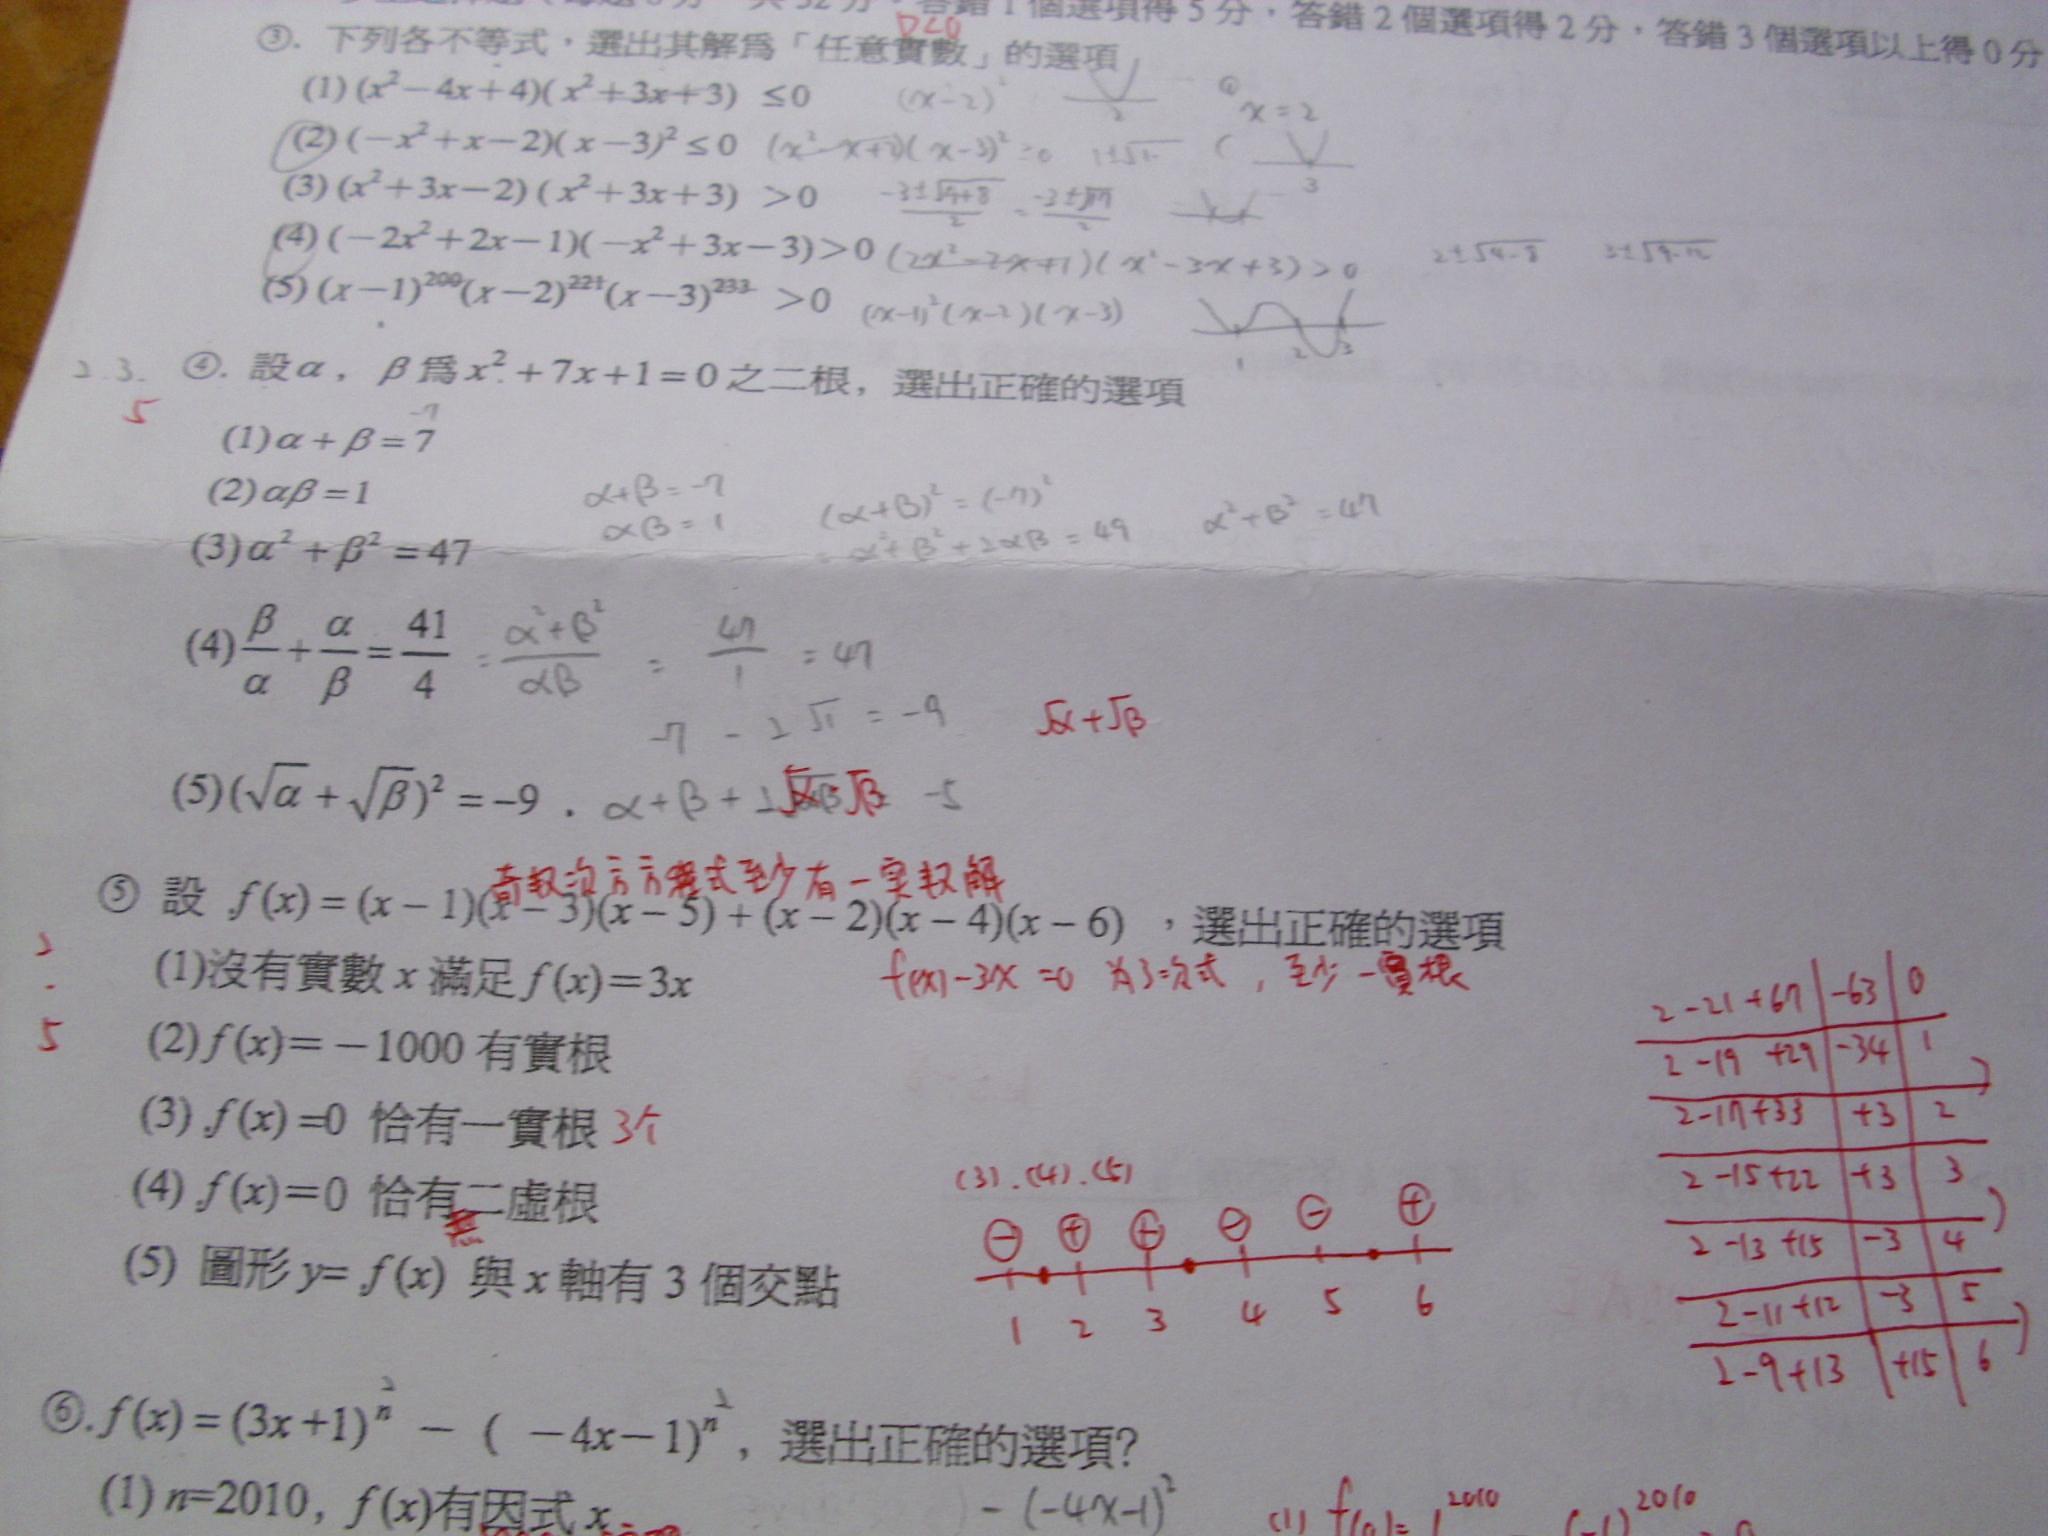 答錯1個選項得5分，答錯2個選項得2分，答錯3個選項以上得0分
D<0
③. 下列各不等式，選出其解爲「任意實數」的選項
(1) (x²－4x＋4)(x²＋3x＋3) ≤0 (x-2)² 2 x=2
(2) (－x²＋x－2)(x－3)²≤0 (x-3)²=0 3
(3) (x²＋3x－2) (x²＋3x＋3) >0 -3±√9+8/2 = -3±√17/2
(4) (－2x²＋2x－1)(－x²＋3x－3)>0 (2x²-2x+1)(x²-3x+3)>0 2±√4-8 3±√9-12
(5) (x－1)²⁰⁰(x－2)²²¹(x－3)²³³ >0 (x-1)²(x-2)(x-3) 1 2 3
2.3. ④. 設α， β爲x²＋7x＋1＝0之二根，選出正確的選項
5
-7
(1)α＋β＝7
(2)αβ＝1 α+β=-7 (α+β)²=(-7)² α²+β²=47
αβ=1 = α²+β²+2αβ=49
(3)α²＋β²＝47
(4)β/α＋α/β＝41/4 = α²+β²/αβ = 47/1 = 47
-7 - 2√1 = -9 √α+√β
(5)(√α＋√β)²＝－9． α+β+2√α√β -5
奇數次方方程式至少有一實數解
⑤ 設 f(x)＝(x－1)(x－3)(x－5)＋(x－2)(x－4)(x－6) ，選出正確的選項
2.5
(1)沒有實數x滿足f(x)＝3x f(x)-3x=0 为3次式，至少一實根
(2)f(x)＝－1000有實根
(3) f(x)＝0 恰有一實根 3个
(4) f(x)＝0 恰有二虛根
無
(5) 圖形y= f(x) 與x軸有3個交點
(3).(4).(5)
⊖ ⊕ ⊕ ⊖ ⊖ ⊕
1 2 3 4 5 6
2 -21 +67 -63 0
2 -19 +29 -34 1
2 -17 +33 +3 2
2 -15 +22 +3 3
2 -13 +15 -3 4
2 -11 +12 -3 5
2 -9 +13 +15 6
2 2
⑥. f(x)＝(3x＋1)ⁿ － ( －4x－1)ⁿ，選出正確的選項?
(1) n=2010，f(x)有因式x -(-4x-1)² (1) f(0)=1²⁰¹⁰ (-1)²⁰¹⁰